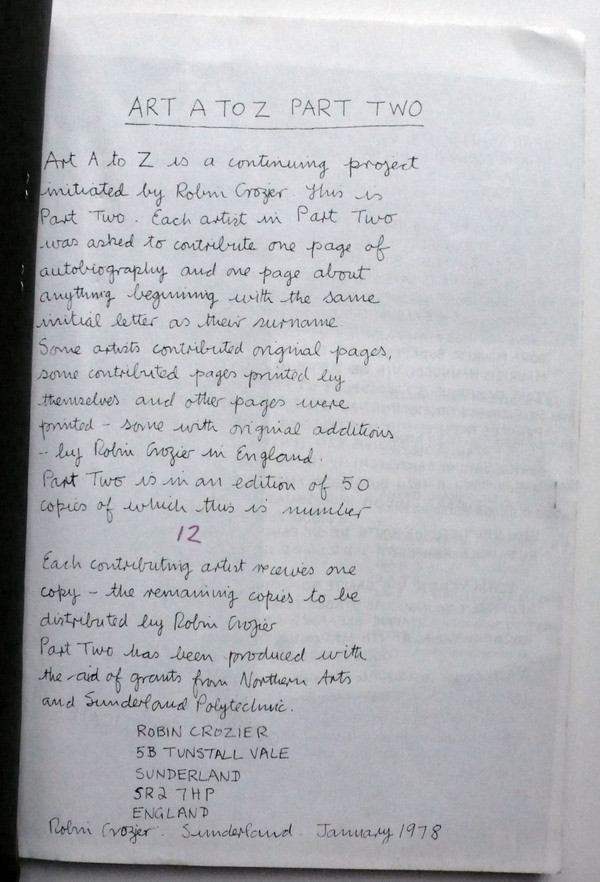 ART A TO Z PART TWO
Art A to Z is a continuing project
initiated by Robin Crozier. This is
Part Two. Each artist in Part Two
was asked to contribute one page of
autobiography and one page about
anything beginning with the same
initial letter as their surname.
Some artists contributed original pages,
some contributed pages printed by
themselves and other pages were
printed - some with original additions
- by Robin Crozier in England.
Part Two is in an edition of 50
copies of which this is number
12
Each contributing artist receives one
copy - the remaining copies to be
distributed by Robin Crozier
Part Two has been produced with
the aid of grants from Northern Arts
and Sunderland Polytechnic.
ROBIN CROZIER
5B TUNSTALL VALE
SUNDERLAND
SR2 7HP
ENGLAND
Robin Crozier. Sunderland. January 1978